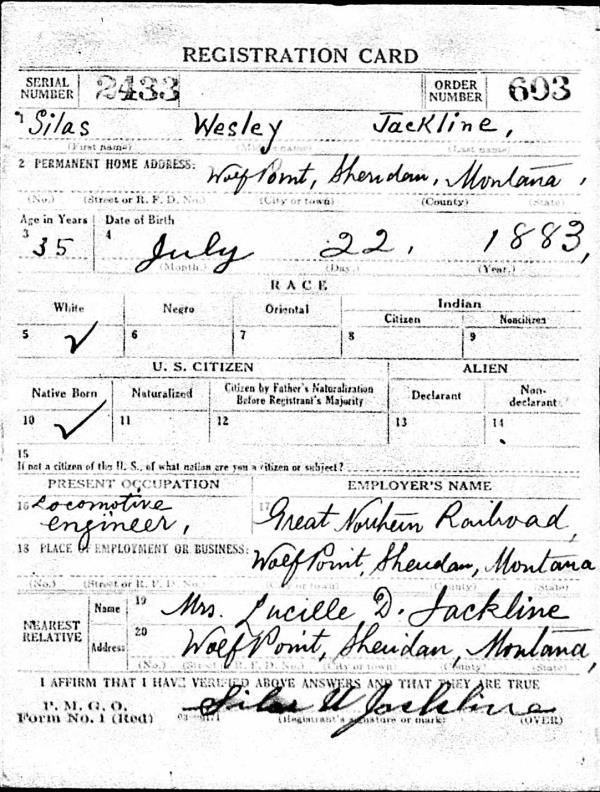 REGISTRATION CARD
SERIAL NUMBER 2433 ORDER NUMBER 603
1 Silas Wesley Jackline,
(First name) (Middle name) (Last name)
2 PERMANENT HOME ADDRESS: Wolf Point, Sheridan, Montana,
(No.) (Street or R. F. D. No.) (City or town) (County) (State)
Age in Years Date of Birth
3 35 4 July 22, 1883,
(Month.) (Day.) (Year.)
RACE
White Negro Oriental Indian
Citizen Noncitizen
5 ✓ 6 7 8 9
U. S. CITIZEN ALIEN
Native Born Naturalized Citizen by Father's Naturalization Before Registrant's Majority Declarant Non-declarant
10 ✓ 11 12 13 14
15
If not a citizen of the U. S., of what nation are you a citizen or subject?
PRESENT OCCUPATION EMPLOYER'S NAME
16 Locomotive engineer, 17 Great Northern Railroad,
18 PLACE OF EMPLOYMENT OR BUSINESS: Wolf Point, Sheridan, Montana
(No.) (Street or R. F. D. No.) (City or town) (County) (State)
NEAREST RELATIVE Name 19 Mrs. Lucille D. Jackline
Address 20 Wolf Point, Sheridan, Montana,
(No.) (Street or R. F. D. No.) (City or town) (County) (State)
I AFFIRM THAT I HAVE VERIFIED ABOVE ANSWERS AND THAT THEY ARE TRUE
P. M. G. O.
Form No. 1 (Red) Silas W Jackline
(Registrant's signature or mark) (OVER)